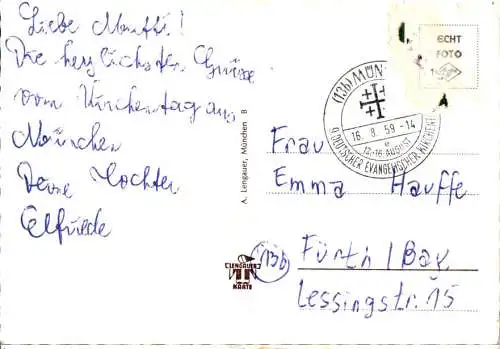 Liebe Mutti!
Die herzlichsten Grüsse
vom Kirchentag aus
München
Deine Tochter
Elfriede
A. Lengauer, München B
LENGAUER
KARTE
ECHT
FOTO
(13b) MÜN
16. 8. 59 - 14
12-16 AUGUST
9. DEUTSCHER EVANGELISCHER KIRCHENT
Frau
Emma Hauffe
(13b)
Fürth / Bay.
Lessingstr. 15